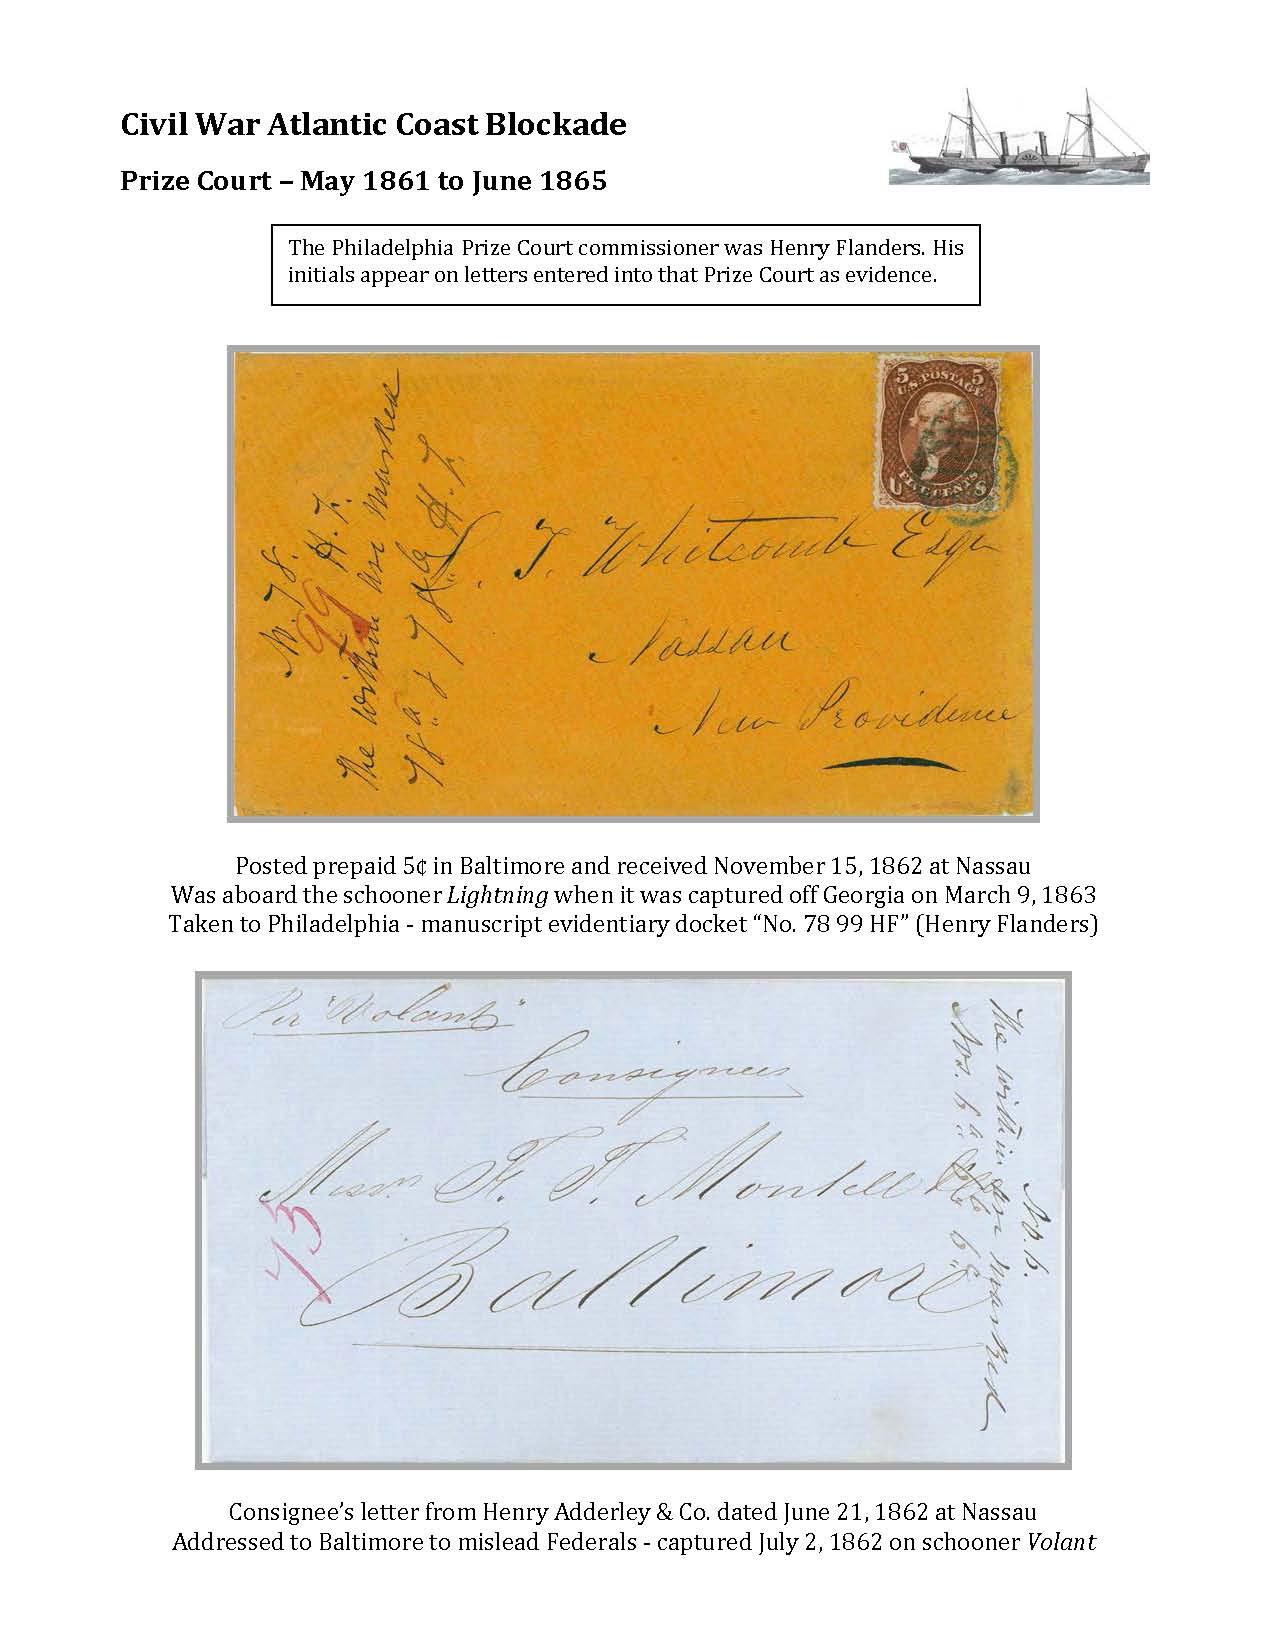 Civil War Atlantic Coast Blockade
Prize Court – May 1861 to June 1865
The Philadelphia Prize Court commissioner was Henry Flanders. His
initials appear on letters entered into that Prize Court as evidence.
No. 78.
99 H. F.
The within are marked
78 a & 78 b H. F.
5 U.S. POSTAGE 5
U FIVE CENTS S
T. Whitcomb Esqr
Nassau
New Providence
Posted prepaid 5¢ in Baltimore and received November 15, 1862 at Nassau
Was aboard the schooner Lightning when it was captured off Georgia on March 9, 1863
Taken to Philadelphia - manuscript evidentiary docket “No. 78 99 HF” (Henry Flanders)
Per "Volant"
Consignees
Messrs F. T. Montell
Baltimore
73
No. 6.
The within are marked
Nos. 6 a
Consignee’s letter from Henry Adderley & Co. dated June 21, 1862 at Nassau
Addressed to Baltimore to mislead Federals - captured July 2, 1862 on schooner Volant